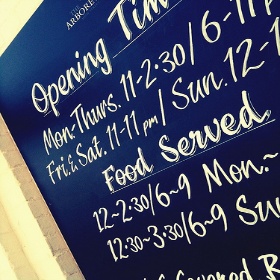 ARBORE
Opening Tim
Mon-Thurs. 11-2:30/6-11p
Fri. & Sat. 11-11 pm / Sun. 12-1
Food Served
12-2:30/6-9 Mon.~
12:30-3:30/6-9 Su